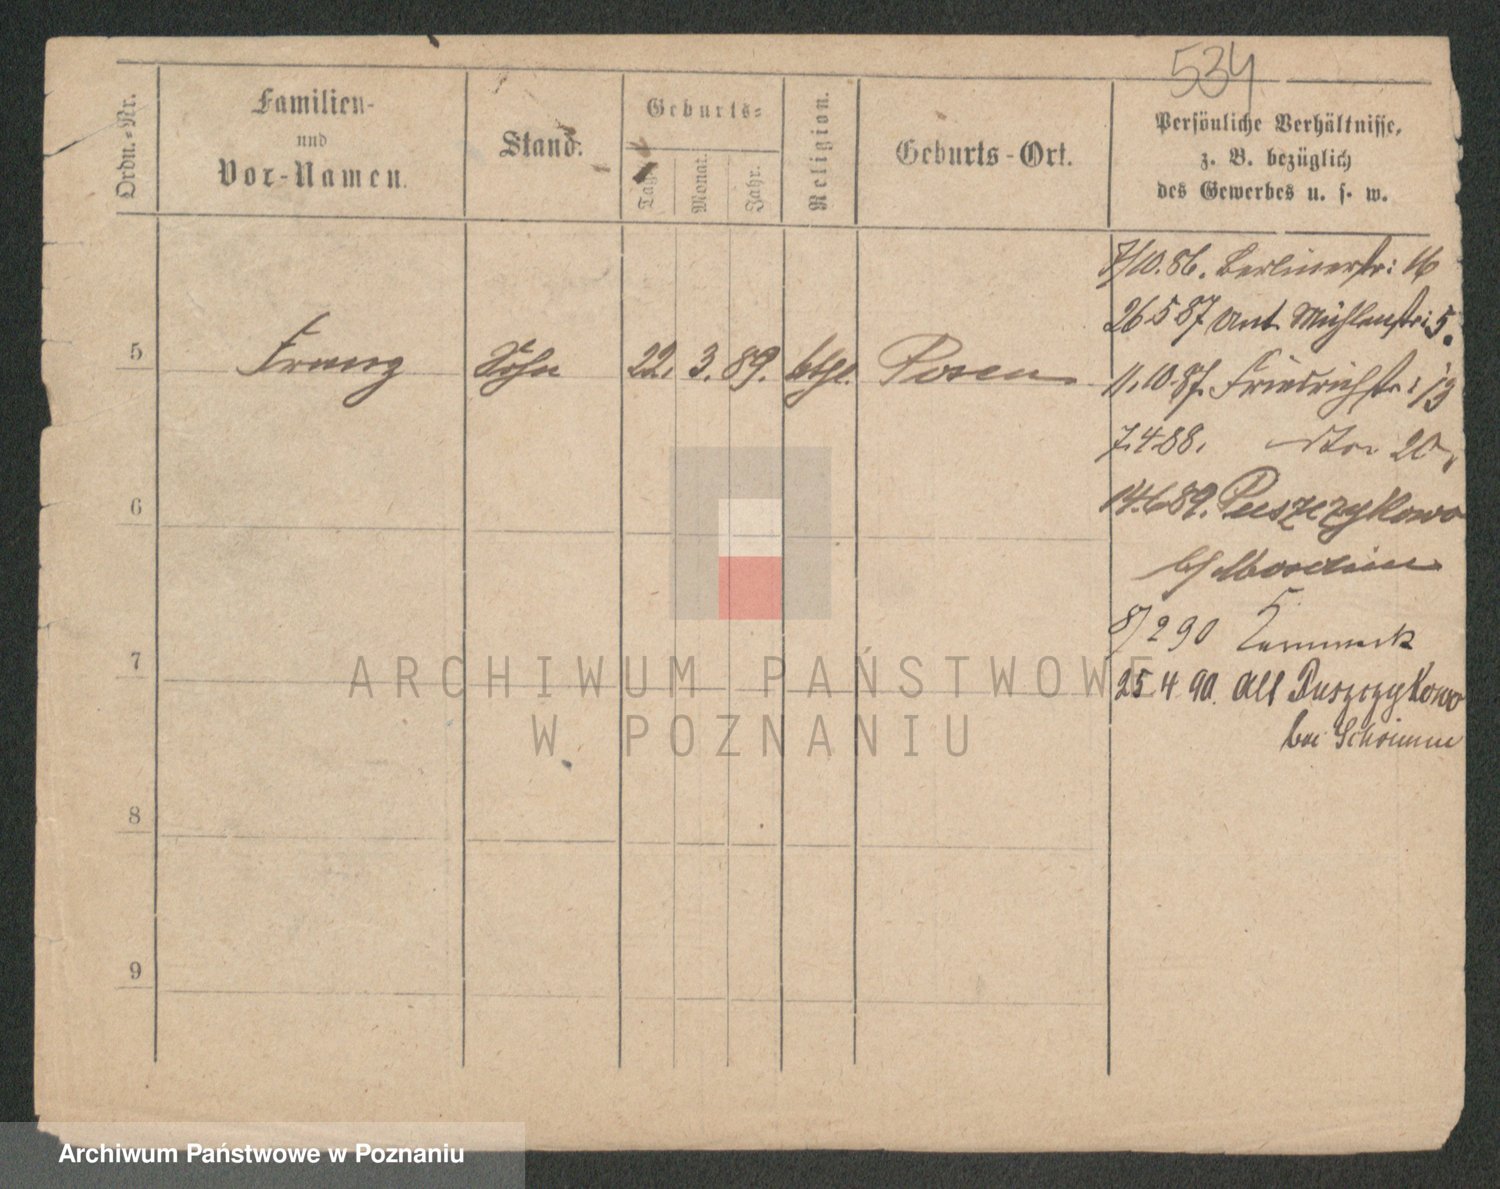 534
Ordn.-Nr.
Familien-
und
Vor-Namen.
Stand.
Geburts-
Tag.
Monat.
Jahr.
Religion.
Geburts-Ort.
Persönliche Verhältnisse,
z. B. bezüglich
des Gewerbes u. s. w.
7/10.86. Berlinerstr: 16
26 5 87 Unt. Mühlenstr: 5.
5 Franz Sohn 22. 3. 89. kthl. Posen
11.10.87. Friedrichstr: 13
7.4 88. dto 20
14.6 89. Puszczykowo
b/ Moschin
6
8/2 90
7
25 4 90. Alt Puszczykowo
bei Schrimm
8
9
ARCHIWUM PAŃSTWOWE
W POZNANIU
Archiwum Państwowe w Poznaniu